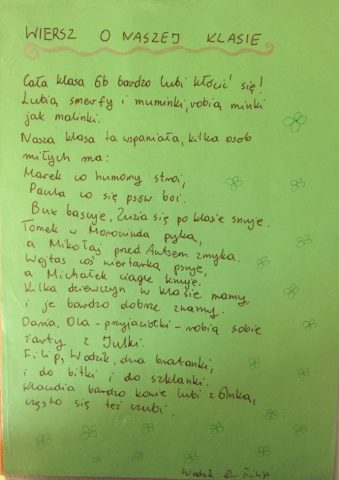 WIERSZ O NASZEJ KLASIE
Cała klasa 6b bardzo lubi kłócić się!
Lubią smerfy i muminki, robią minki
jak malinki.
Nasza klasa ta wspaniała, kilka osób
miłych ma:
Marek co humory stroi,
Paula co się psów boi.
Bux basuje, Zuzia się po klasie snuje.
Tomek w Morowinda pyka,
a Mikołaj przed Antsem zmyka.
Wojtas coś wiertarką psuje,
a Michałek ciągle knuje.
Kilka dziewczyn w klasie mamy,
i je bardzo dobrze znamy.
Daria, Ola - przyjaciółki - robią sobie
żarty z Julki.
Filip, Wodzik, dwa bratanki,
i do bitki i do szklanki.
Klaudia bardzo konie lubi z Olnką,
często się też czubi.